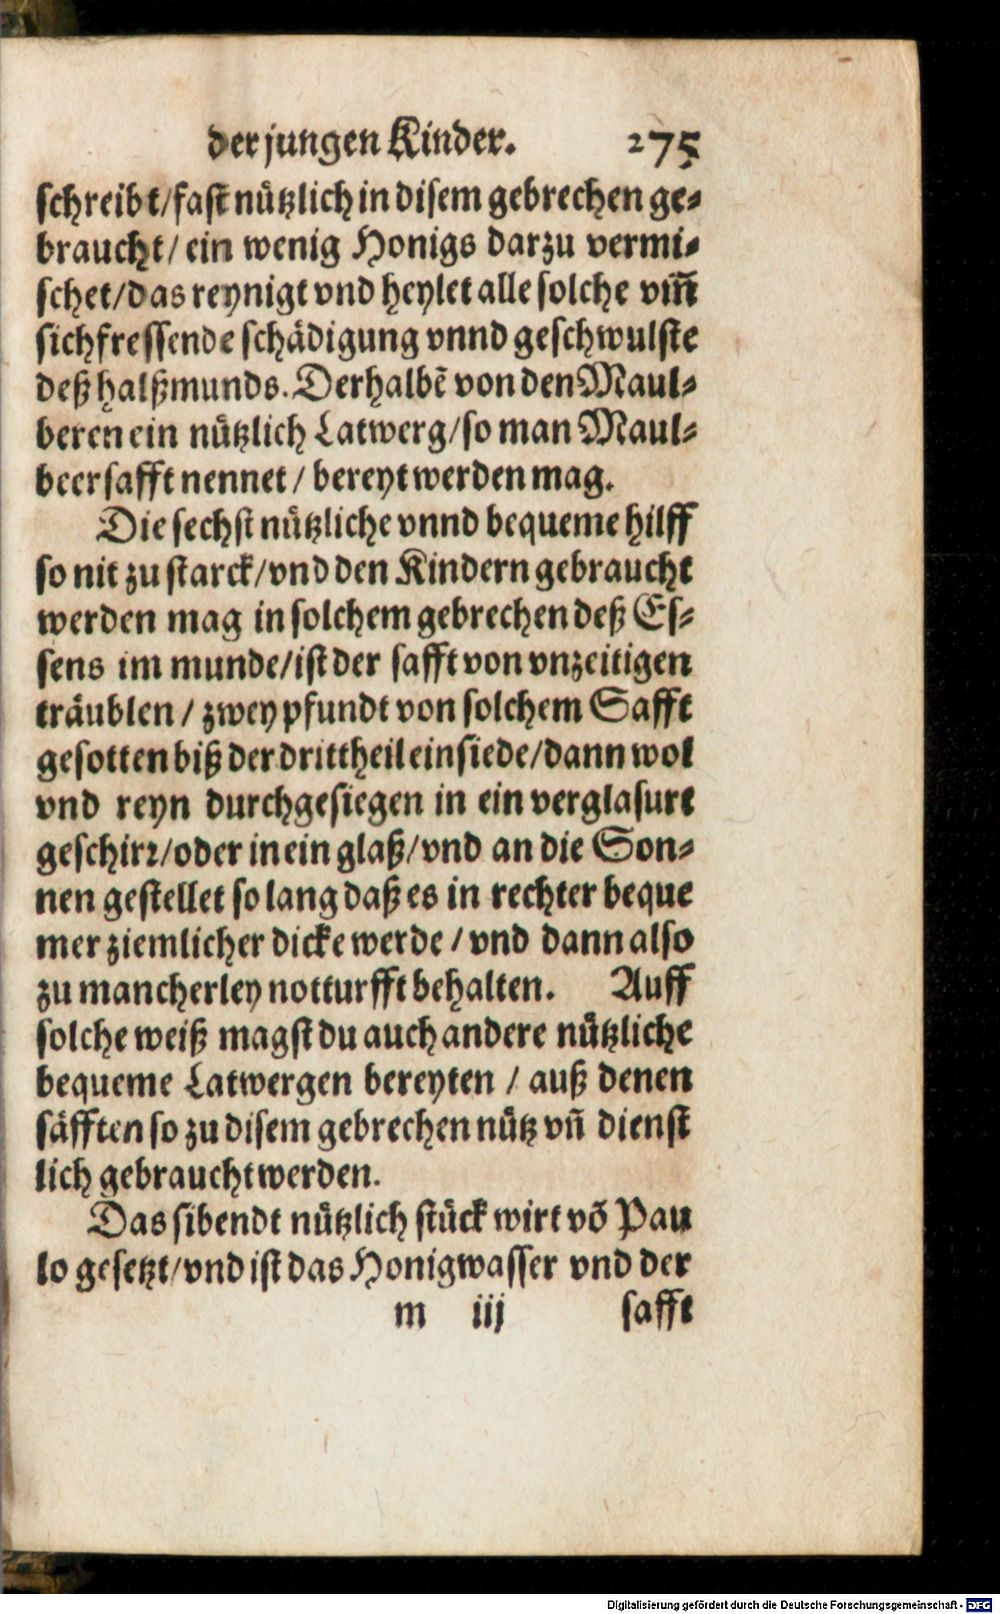 der jungen Kinder. 275
schreibt/fast nützlich in disem gebrechen ge⸗
braucht/ ein wenig Honigs darzu vermi⸗
schet/das reynigt vnd heylet alle solche vm̃
sichfressende schädigung vnnd geschwulste
deß halßmunds. Derhalbẽ von den Maul⸗
beren ein nützlich Latwerg/so man Maul⸗
beersafft nennet/ bereyt werden mag.
Die sechst nützliche vnnd bequeme hilff
so nit zu starck/vnd den Kindern gebraucht
werden mag in solchem gebrechen deß Es⸗
sens im munde/ist der safft von vnzeitigen
träublen/ zwey pfundt von solchem Safft
gesotten biß der drittheil einsiede/dann wol
vnd reyn durchgesiegen in ein verglasurt
geschirꝛ/oder in ein glaß/vnd an die Son⸗
nen gestellet so lang daß es in rechter beque
mer ziemlicher dicke werde/ vnd dann also
zu mancherley notturfft behalten. Auff
solche weiß magst du auch andere nützliche
bequeme Latwergen bereyten/ auß denen
säfften so zu disem gebrechen nütz vñ dienst
lich gebraucht werden.
Das sibendt nützlich stück wirt võ Pau
lo gesetzt/vnd ist das Honigwasser vnd der
m iij safft
Digitalisierung gefördert durch die Deutsche Forschungsgemeinschaft - DFG